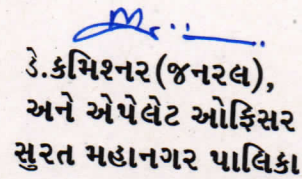 ડે.કમિશ્નર(જનરલ),
અને એપેલેટ ઓફિસર
સુરત મહાનગર પાલિકા